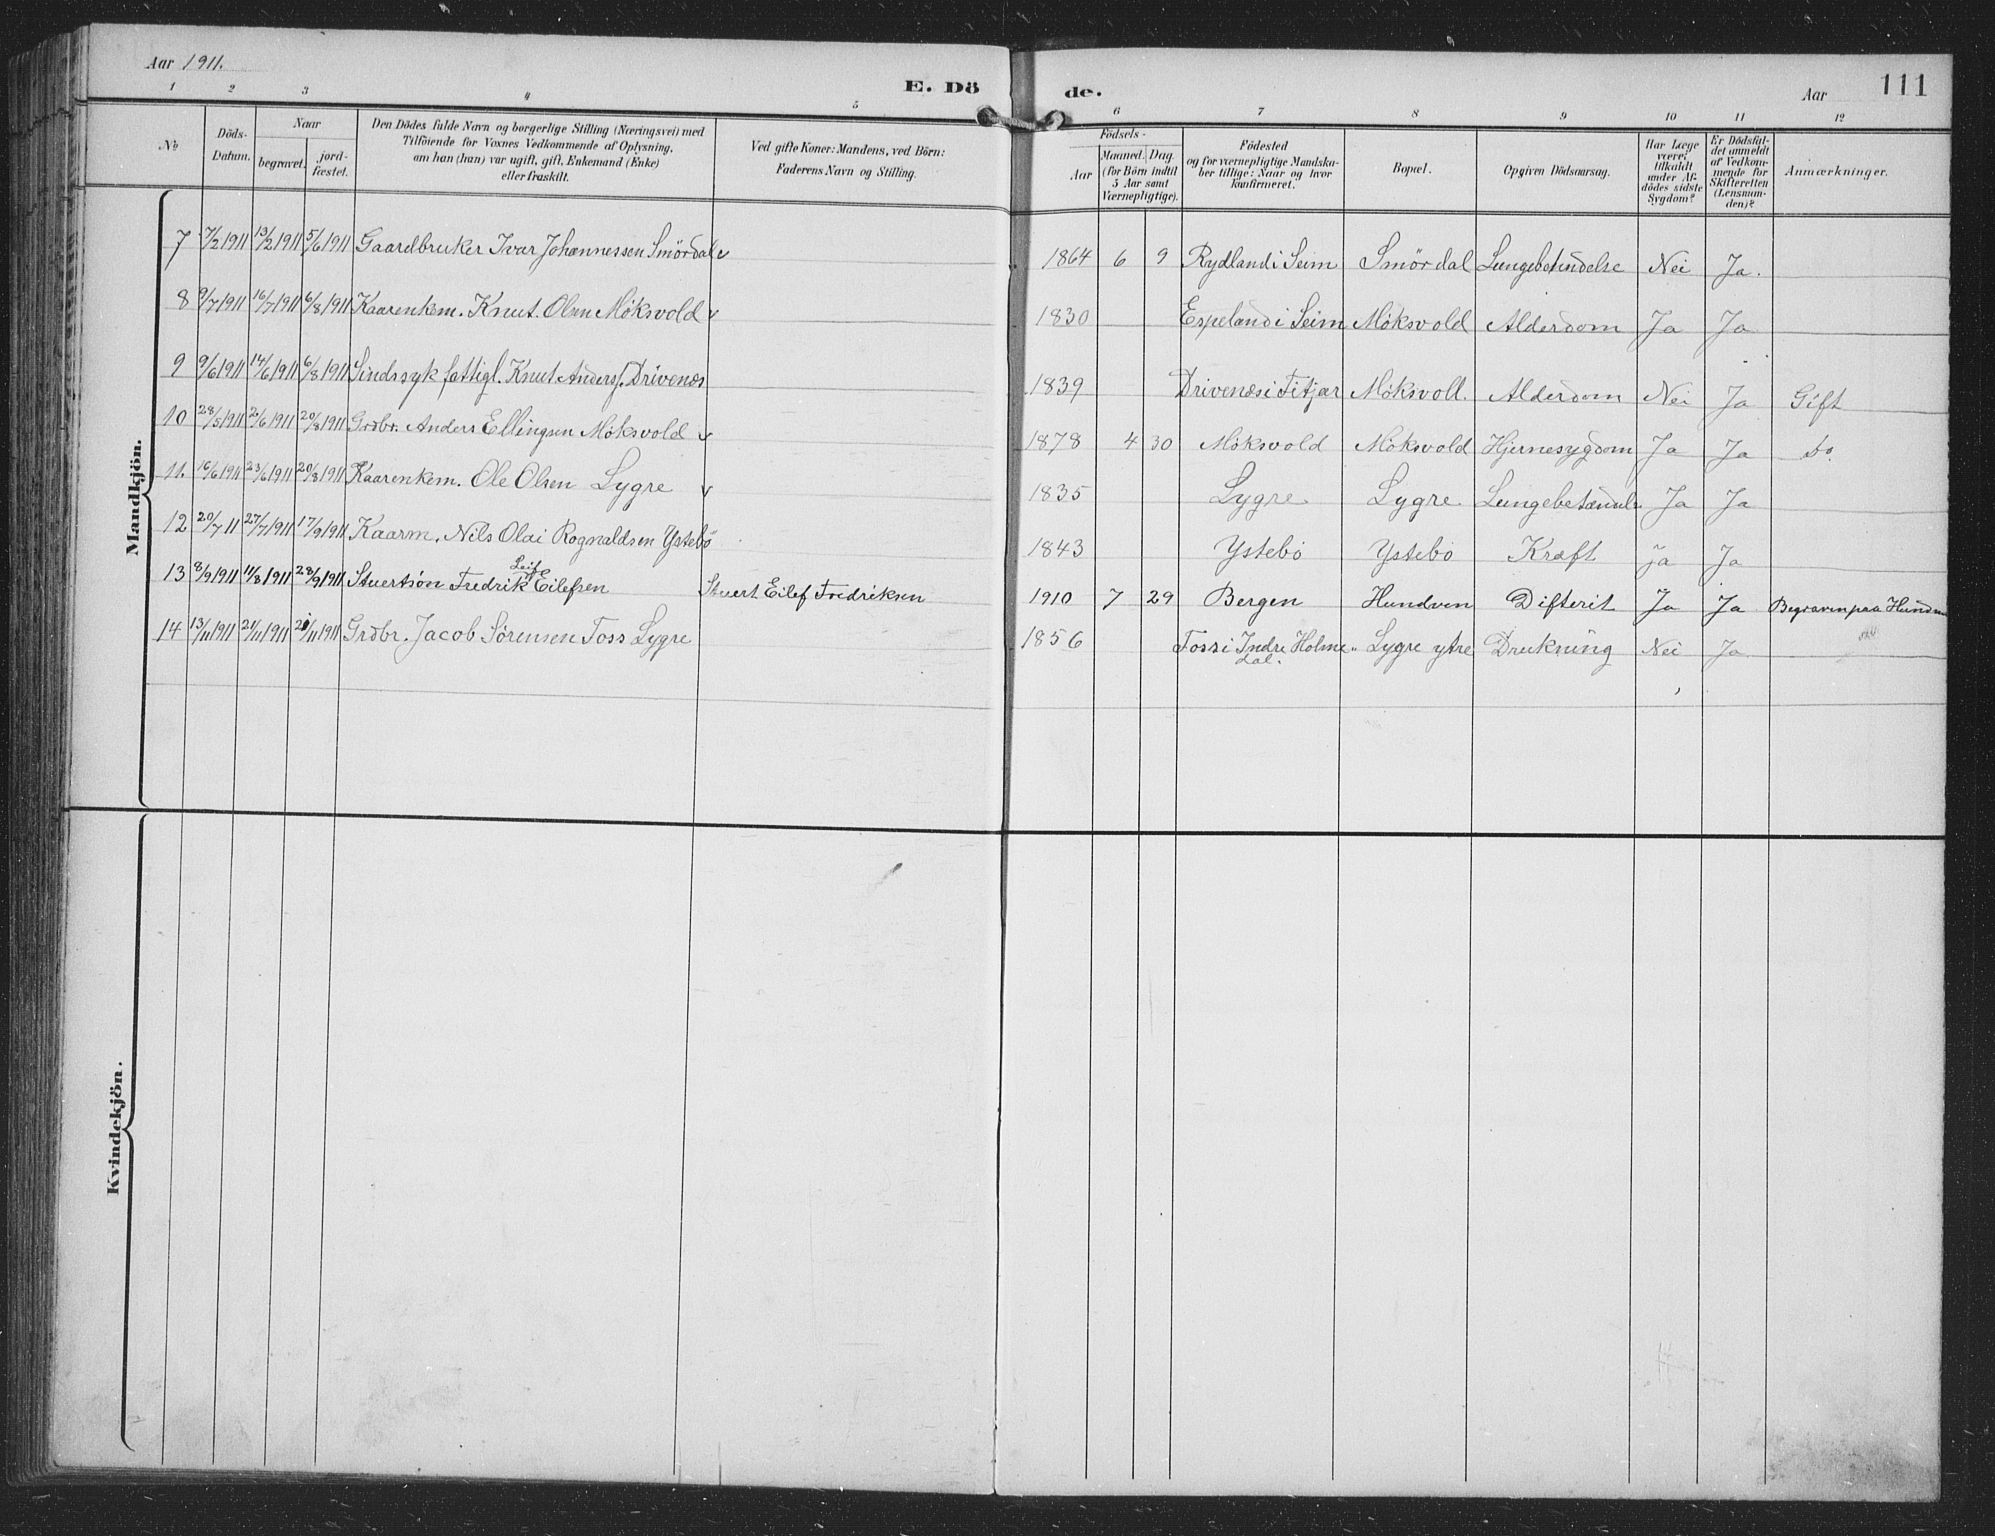 Aar 1911.
E. Dö
de.
Aar
111
1 2 3 4 5 6 7 8 9 10 11 12
№
Döds-
Datum.
Naar
begravet.
jord-
fæstet.
Den Dödes fulde Navn og borgerlige Stilling (Næringsvei) med
Tilföiende for Voxnes Vedkommende af Oplysning,
om han (hun) var ugift, gift, Enkemand (Enke)
eller fraskilt.
Ved gifte Koner: Mandens, ved Börn:
Faderens Navn og Stilling.
Födsels-
Aar
Maaned. Dag.
(for Börn indtil
5 Aar samt
Værnepligtige).
Födested
og for værnepligtige Mandska-
ber tillige: Naar og hvor
konfirmeret.
Bopæl.
Opgiven Dödsaarsag.
Har Læge
været
tilkaldt
under Af-
dödes sidste
Sygdom?
Er Dödsfal-
det anmeldt
af Vedkom-
mende for
Skifteretten
(Lensman-
den)?
Anmærkninger.
Mandkjön.
7 7/2 1911 13/2 1911 5/6 1911 Gaardbruker Ivar Johannessen Smördal 1864 6 9 Rydland i Seim Smördal Lungebetændelse Nei Ja.
8 9/7 1911 16/7 1911 6/8 1911 Kaarenkem. Knut Olsen Moksvold 1830 Espeland i Seim Moksvold Alderdom Ja Ja
9 9/6 1911 14/6 1911 6/8 1911 Sindssyk fattigl. Knut Anders. Drivenæs 1839 Drivenæs i Fitjar Moksvoll. Alderdom Nei Ja Gift
10 28/5 1911 2/6 1911 20/8 1911 Grdbr. Anders Ellingsen Moksvold 1878 4 30 Moksvold Moksvold Hjernesygdom Ja Ja Do.
11. 16/6 1911 23/6 1911 20/8 1911 Kaarenkem. Ole Olsen Lygre 1835 Lygre Lygre Ja Ja
12 20/7 11 27/7 1911 17/9 1911 Kaarm. Nils Olai Rognaldsen Ystebö 1843 Ystebo Ystebo Kræft Ja Ja
Leif
13 8/9 1911 11/8 1911 28/9 1911 Stuertsön Fredrik Eilefsen Stuert Eilef Fredriksen 1910 7 29 Bergen Hundven Difterit Ja Ja Begraven paa
14 13/11 1911 21/11 1911 21/11 1911 Grdbr. Jacob Sörensen Foss Lygre 1856 Foss i Indre Holme- Lygre ytre Drukning Nei Ja
dal.
Kvindekjön.